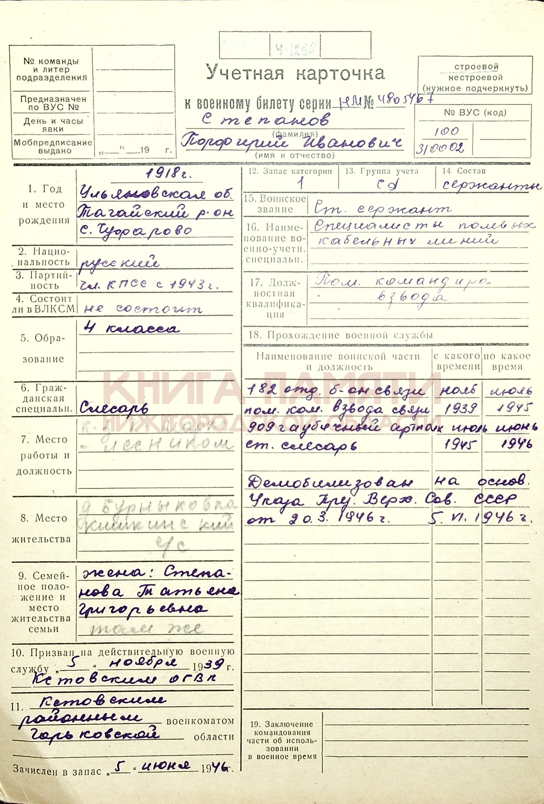 № команды
и литер
подразделения
Предназначен
по ВУС №
День и часы
явки
Мобпредписание
выдано „ “ 19 г.
Учетная карточка
к военному билету серии НМ № 4805467
Степанов
(фамилия)
Порфирий Иванович
(имя и отчество)
строевой
нестроевой
(нужное подчеркнуть)
№ ВУС (код)
100
310002
1. Год
и место
рождения
1918 г.
Ульяновская об.
Тагайский р-он
с. Чуфарово
2. Нацио-
нальность русский
3. Партий-
ность чл. КПСС с 1943 г.
4. Состоит
ли в ВЛКСМ не состоит
5. Обра-
зование
4 класса
6. Граж-
данская
специальн. Слесарь
7. Место
работы и
должность
Лесником
8. Место
жительства
д. Бурныковка
с/с
9. Семей-
ное поло-
жение и
место
жительства
семьи
жена: Степа-
нова Татьяна
Григорьевна
там же
10. Призван на действительную военную
службу „5“ ноября 1939 г.
Кстовским ОГВК
11. Кстовским
районным военкоматом
Горьковской области
Зачислен в запас „5“ июня 1946 г.
12. Запас категория
1
13. Группа учета
СА
14. Состав
сержанты
15. Воинское
звание Ст. сержант
16. Наиме-
нование во-
енно-учетн.
специальн.
Специалисты полевых
кабельных линий
17. Долж-
ностная
квалифика-
ция
Пом. командира
взвода
18. Прохождение военной службы
Наименование воинской части
и должность
с какого
времени
по какое
время
182 отд. б-он связи нояб июль
пом. ком. взвода связи 1939 1945
909 гаубичный артполк июль июнь
ст. слесарь 1945 1946
Демобилизован на основ.
Указа През. Верх. Сов. СССР
от 20.3. 1946 г. 5.VI. 1946 г.
19. Заключение
командования
части об исполь-
зовании
в военное время
КНИГА ПАМЯТИ
НИЖЕГОРОДСКОЙ ОБЛАСТИ